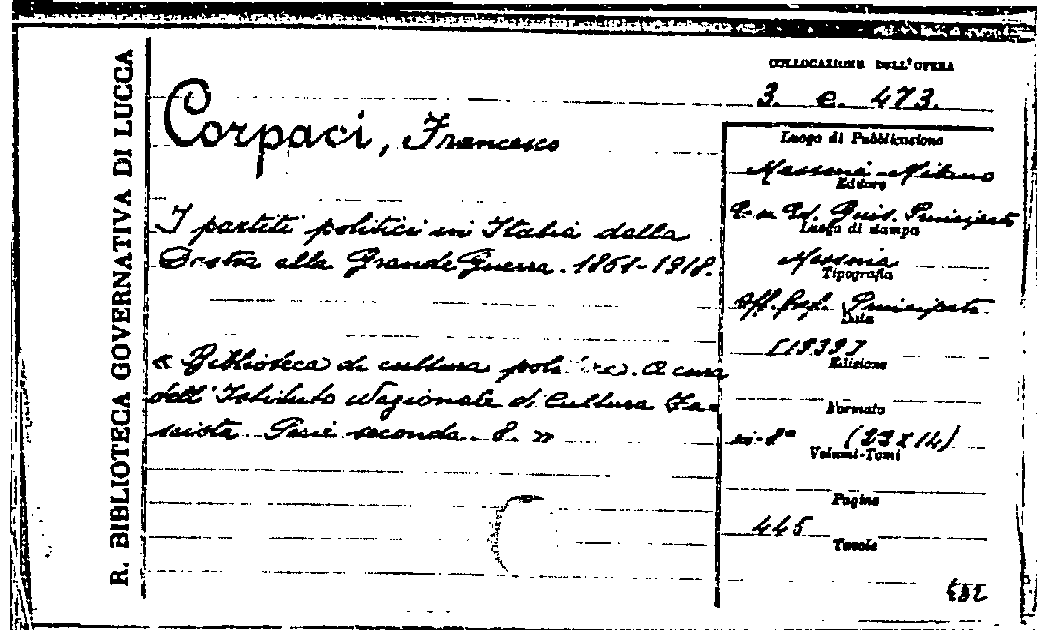 R. BIBLIOTECA GOVERNATIVA DI LUCCA
COLLOCAZIONE DELL'OPERA
3. e. 473.
Corpaci, Francesco
I partiti politici in Italia dalla
Destra alla Grande Guerra. 1861-1918.
« Biblioteca di cultura politica. A cura
dell'Istituto Nazionale di Cultura Fa=
scista. Serie seconda. 8. »
Luogo di Pubblicazione
Messina-Milano
Editore
Ed. Gius. Principato
Luogo di stampa
Messina
Tipografia
Off. Principato
Data
[1939]
Edizione
Formato
in-8° (23x14)
Volumi-Tomi
Pagine
445
Tavole